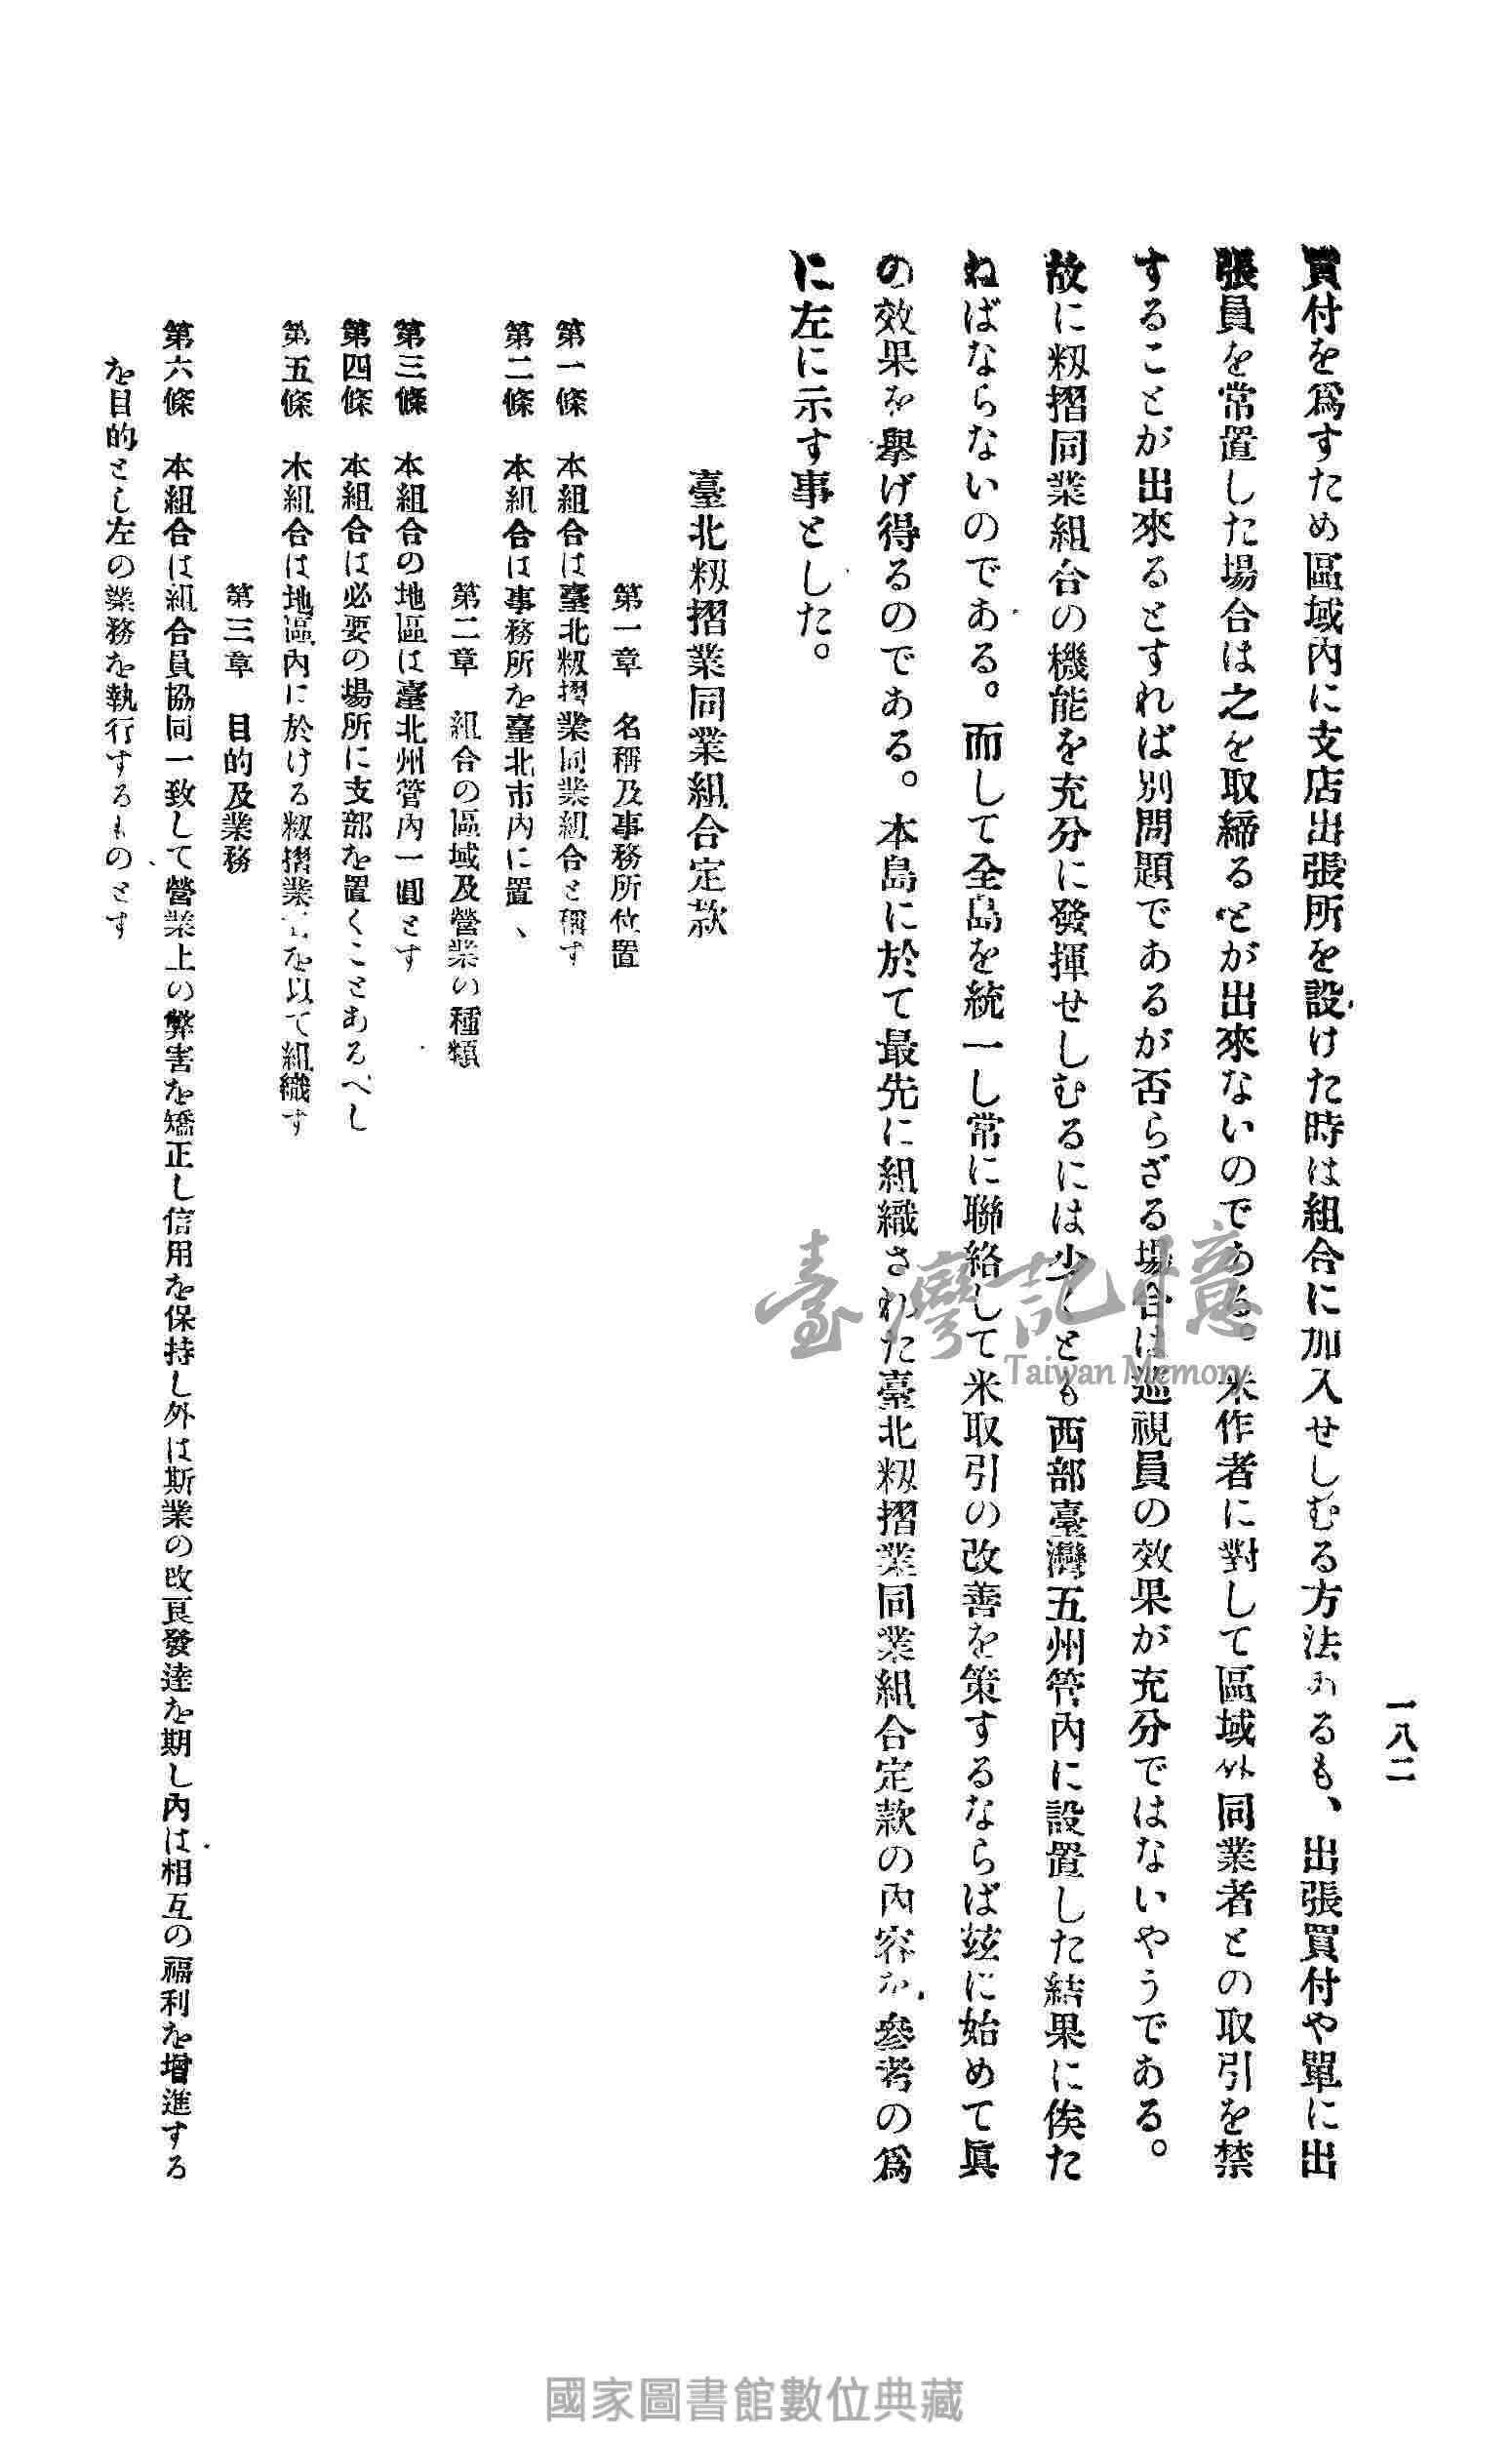 一八二
買付を爲すため區域內に支店出張所を設けた時は組合に加入せしむる方法あるも、出張買付や單に出
張員を常置した場合は之を取締ることが出來ないのである。米作者に對して區域外同業者との取引を禁
することが出來るとすれば別問題であるが否らざる場合は巡視員の效果が充分ではないやうである。
故に籾摺同業組合の機能を充分に發揮せしむるには少くとも西部臺灣五州管內に設置した結果に俟た
ねばならないのである。而して全島を統一し常に聯絡して米取引の改善を策するならば玆に始めて眞
の效果を擧げ得るのである。本島に於て最先に組織された臺北籾摺業同業組合定款の內容を參考の爲
に左に示す事とした。
臺北籾摺業同業組合定款
第一章 名稱及事務所位置
第一條 本組合は臺北籾摺業同業組合と稱す
第二條 本組合は事務所を臺北市內に置、
第二章 組合の區域及營業の種類
第三條 本組合の地區は臺北州管內一圓とす
第四條 本組合は必要の場所に支部を置くことあるべし
第五條 本組合は地區內に於ける籾摺業者を以て組織す
第三章 目的及業務
第六條 本組合は組合員協同一致して營業上の弊害を矯正し信用を保持し外は斯業の改良發達を期し內は相互の福利を增進する
を目的とし左の業務を執行するものとす
臺灣記憶
Taiwan Memory
國家圖書館數位典藏